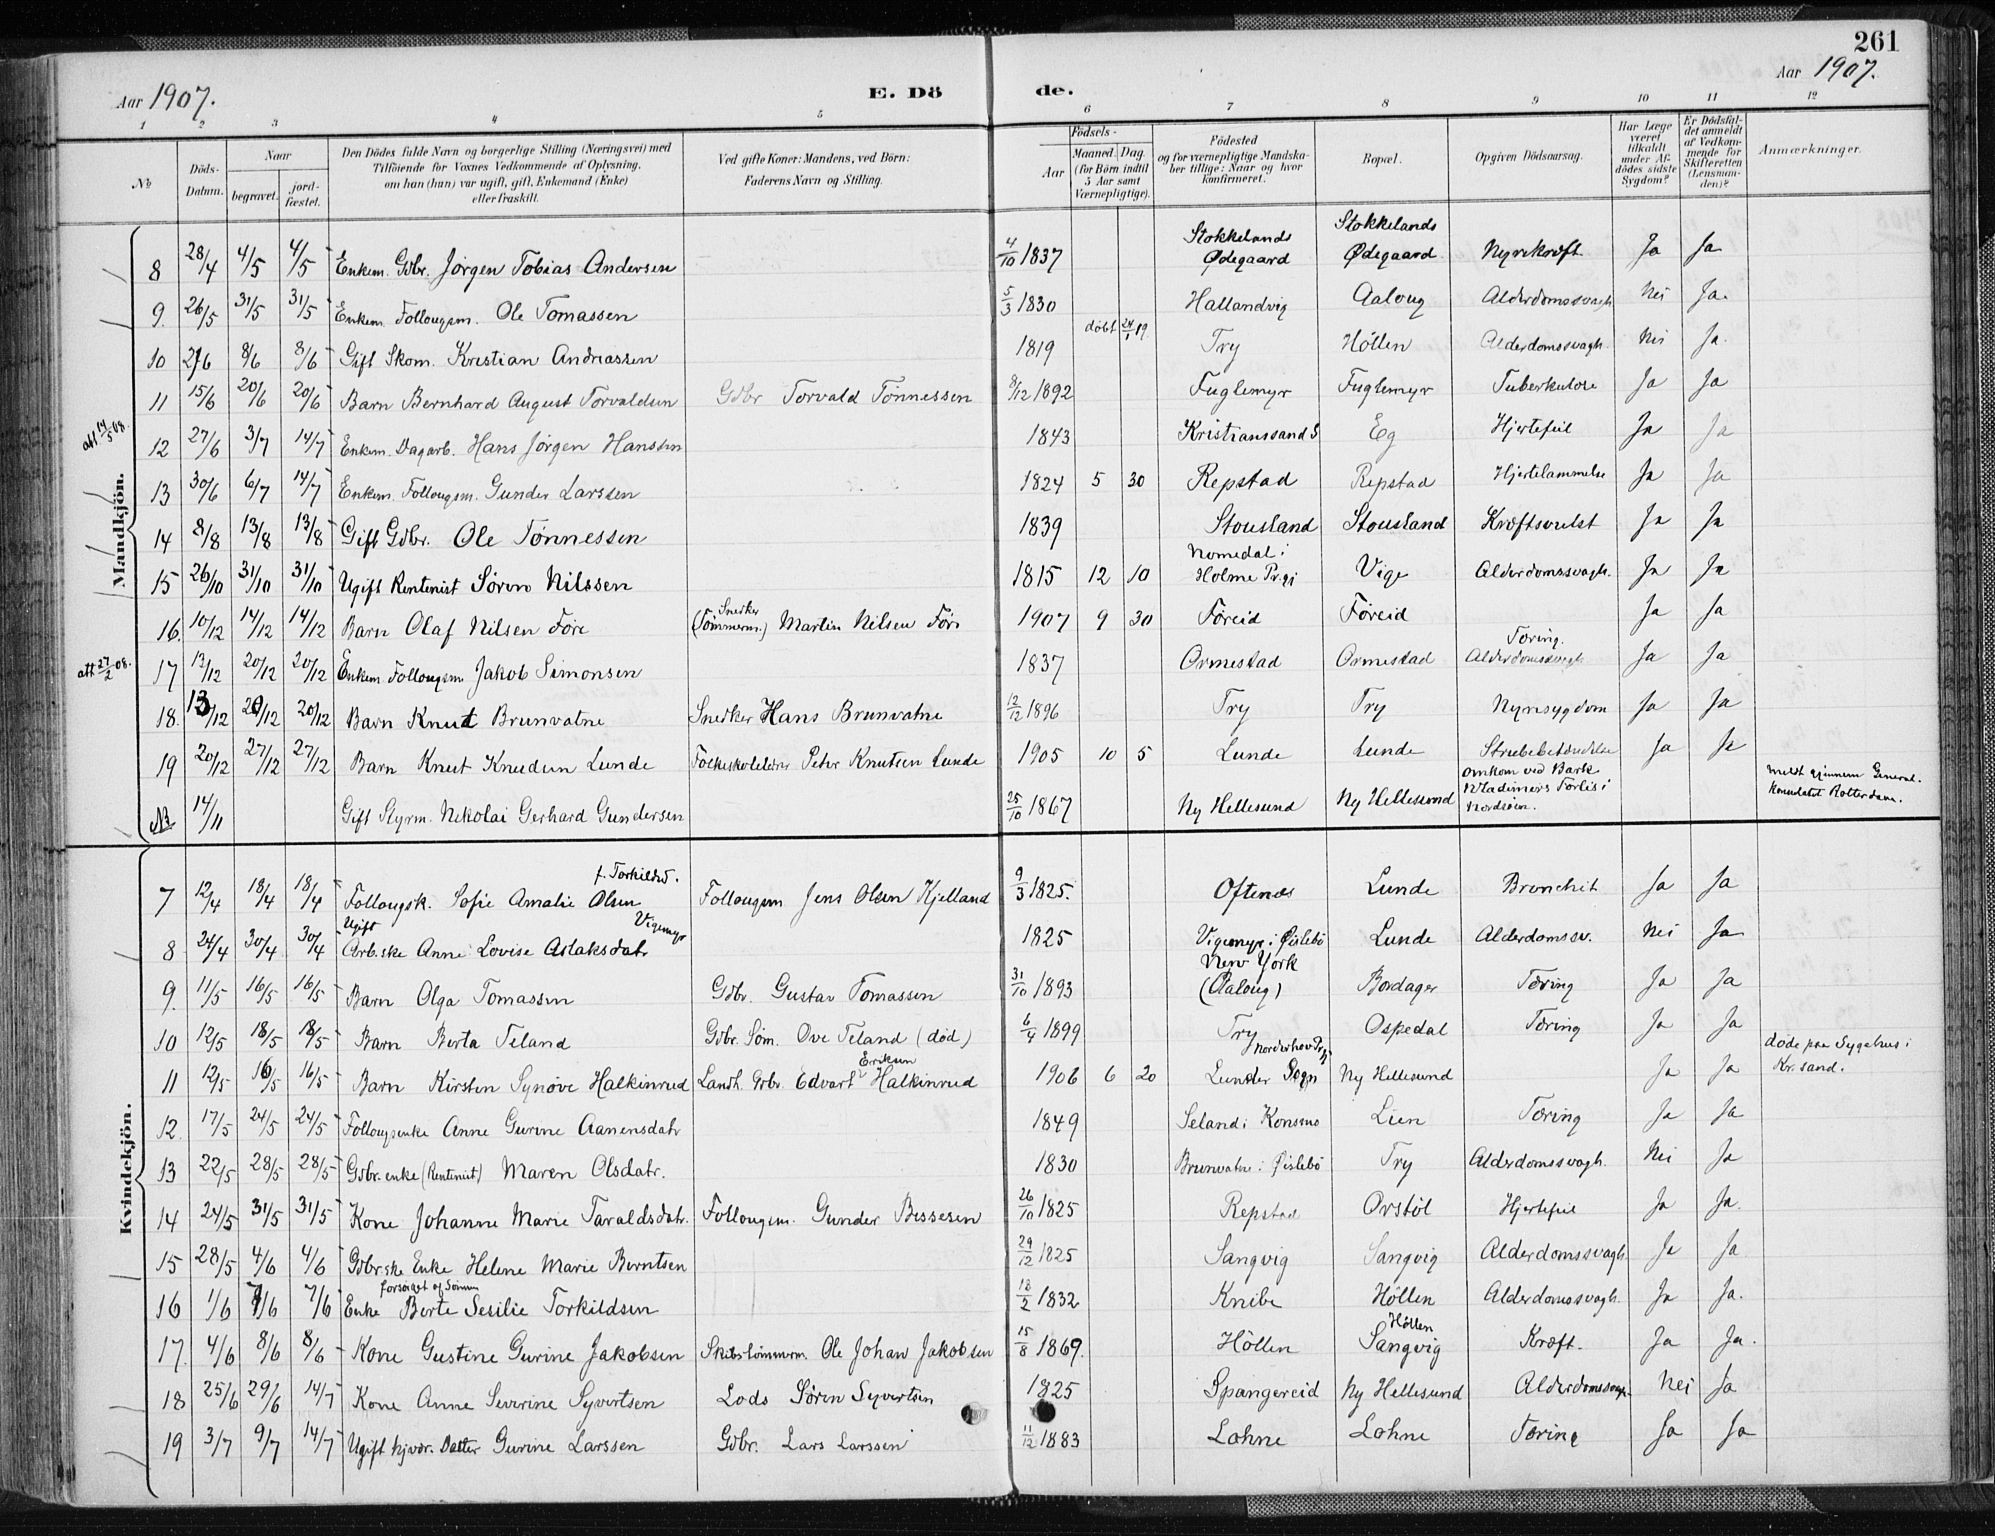 261
Aar 1907.
E. Dö de.
Aar 1907.
1 2 3 4 5 6 7 8 9 10 11 12
№
Döds-Datum.
Naar
begravet.
jord-fæstet.
Den Dödes fulde Navn og borgerlige Stilling (Næringsvei) med
Tilföiende for Voxnes Vedkommende af Oplysning,
om han (hun) var ugift, gift, Enkemand (Enke)
eller fraskilt.
Ved gifte Koner: Mandens, ved Börn:
Faderens Navn og Stilling.
Födsels-
Aar
Maaned. Dag.
(for Börn indtil
5 Aar samt
Værnepligtige).
Födested
og for værnepligtige Mandska-
ber tillige: Naar og hvor
konfirmeret.
Bopæl.
Opgiven Dödsaarsag.
Har Læge
været
tilkaldt
under Af-
dödes sidste
Sygdom?
Er Dödsfal-
det anmeldt
af Vedkom-
mende for
Skifteretten
(Lensman-
den)?
Anmærkninger.
Mandkjön.
8 28/4 4/5 4/5 Enkem. Gdbr. Jørgen Tobias Andersen 4/10 1837 Stokkelands Ødegaard Stokkelands Ødegaard Nyrekræft Ja Ja
9. 26/5 31/5 31/5 Enkem. Follougsm. Ole Tomassen 5/3 1830 Hallandvig Aaloug Alderdomssvagh. Nei Ja.
10 2/6 8/6 8/6 Gift Skom. Kristian Andreassen 1819 døbt 24/1 19. Try Höllen Alderdomssvagh. Nei Ja.
11 15/6 20/6 20/6 Barn Bernhard August Torvaldsen Gdbr Torvald Tønnessen 8/12 1892 Fuglemyr Fuglemyr Tuberkulose Ja Ja
att 14/5 08. 12 27/6 3/7 14/7 Enkem. Dagarb. Hans Jørgen Hanssen 1843 Kristianssand S Eg Hjertefeil Ja Ja
13 30/6 6/7 14/7 Enkem. Follougsm. Gunder Larssen 1824 5 30 Repstad Repstad Hjertelammelse Ja Ja
14 8/8 13/8 13/8 Gift Gdbr. Ole Tønnessen 1839 Stousland Stousland Kræftsvulst Ja Ja
15 26/10 31/10 31/10 Ugift Rentenist Søren Nilssen 1815 12 10 Nomedal i Holme Pr.gj Vige Alderdomssvagh. Ja Ja
16. 10/12 14/12 14/12 Barn Olaf Nilsen Føre Snedker (Tømmerm.) Martin Nilsen Føre 1907 9 30 Føreid Føreid Ja Ja
att 27/2 08. 17 13/12 20/12 20/12 Enkem Follougsm Jakob Simonsen 1837 Ormestad Ormestad Tæring. Alderdomssvagh Ja Ja
18. 13/12 20/12 20/12 Barn Knut Brunvatne Snedker Hans Brunvatne 12/12 1896 Try Try Nyresygdom Ja Ja
19 20/12 27/12 27/12 Barn Knut Knudsen Lunde Folkeskolelærer Peter Knutsen Lunde 1905 10 5 Lunde Lunde Strubebetændelse Ja Ja
NB 14/11 Gift Styrm. Nikolai Gerhard Gundersen 25/10 1867 Ny Hellesund Ny Hellesund Omkom ved Bark Wladimers Forlis i Nordsøen. Meldt gjennem General-konsulatet Rotterdam.
Kvindekjön.
7 12/4 18/4 18/4 Follougsk. Sofie Amalie Olsen f. Torkildsd. Follougsm Jens Olsen Kjelland 9/3 1825. Oftenæs Lunde Bronchit Ja Ja
8 24/4 30/4 30/4 Ugift Arb.ske Anne Lovise Aslaksdatr Vigemyr 1825 Vigemyr i Øislebö Lunde Alderdomssv. Nei Ja
9. 11/5 16/5 16/5 Barn Olga Tomassen Gdbr. Gustav Tomassen 31/10 1893 New York (Aaloug) Bordager Tæring Ja Ja
10 12/5 18/5 18/5 Barn Berta Teland Gdbr. Søm. Ove Teland (død) 6/4 1899 Try Ospedal Tæring Ja Ja
11 12/5 16/5 16/5 Barn Kirsten Synøve Halkinrud Landh. Gdbr. Edvart Eriksen Halkinrud 1906 6 20 Norderhov Pr.gj Lunder Sogn Ny Hellesund Ja Ja døde paa Sygehus i Kr.sand.
12. 17/5 24/5 24/5 Follougsenke Anne Gurine Aanensdatr 1849 Seland i Konsmo Lien Tæring Ja Ja
13 22/5 28/5 28/5 Gdbr. enke (Rentenist) Maren Olsdatr. 1830 Brunvatne i Øislebö Try Alderdomssvagh. Nei Ja
14 24/5 31/5 31/5 Kone Johanne Marie Taraldsdatr. Follougsm. Gunder Bessesen 26/10 1825 Repstad Orstöl Hjertefeil Ja Ja.
15 28/5 4/6 4/6 Gdbr.ske Enke Helene Marie Berntsen 29/12 1825 Sangvig Sangvig Alderdomssvagh Ja Ja
16 1/6 7/6 7/6 Enke forsørget af Sønnen Berte Sesilie Torkildsen 18/2 1832 Knibe Höllen Alderdomssvagh. Ja Ja.
17. 4/6 8/6 8/6 Kone Gustine Gurine Jakobsen Skibstømmerm. Ole Johan Jakobsen 15/8 1869. Höllen Höllen Sangvig Kræft. Ja Ja.
18 25/6 29/6 14/7 Kone Anne Severine Syvertsen Lods Søren Syvertsen 1825 Spangereid Ny Hellesund Alderdomssvagh. Nei Ja
19 3/7 9/7 14/7 Ugift hjvær. Datter Gurine Larssen Gdbr. Lars Larssen 11/12 1883 Lohne Lohne Tæring Ja Ja